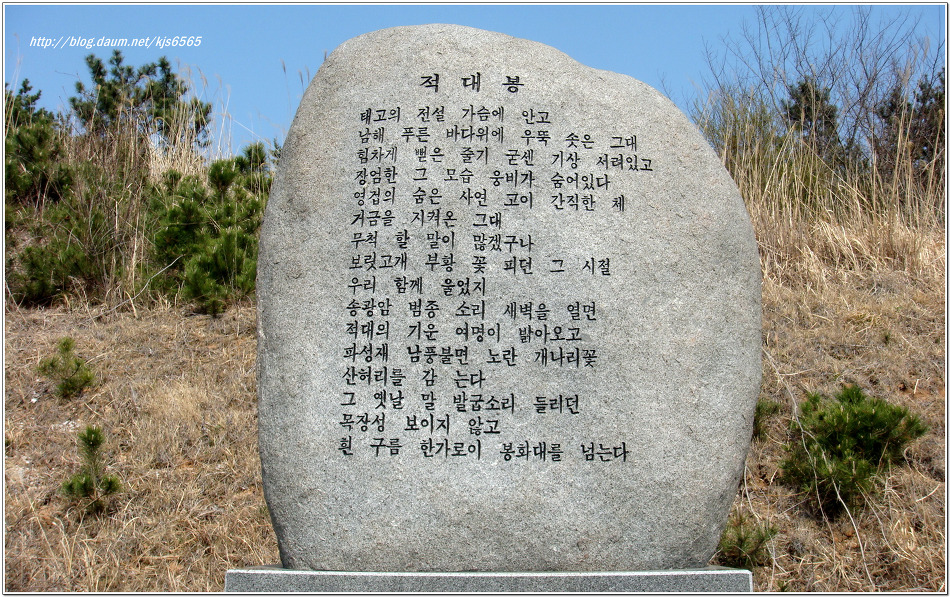 http://blog.daum.net/kjs6565
적대봉
태고의 전설 가슴에 안고
남해 푸른 바다위에 우뚝 솟은 그대
힘차게 뻗은 줄기 굳센 기상 서려있고
장엄한 그 모습 웅비가 숨어있다
영겁의 숨은 사연 고이 간직한 체
거금을 지켜온 그대
무척 할 말이 많겠구나
보릿고개 부황 꽃 피던 그 시절
우리 함께 울었지
송광암 범종 소리 새벽을 열면
적대의 기운 여명이 밝아오고
파성재 남풍불면 노란 개나리꽃
산허리를 감 는다
그 옛날 말 발굽소리 들리던
목장성 보이지 않고
흰 구름 한가로이 봉화대를 넘는다